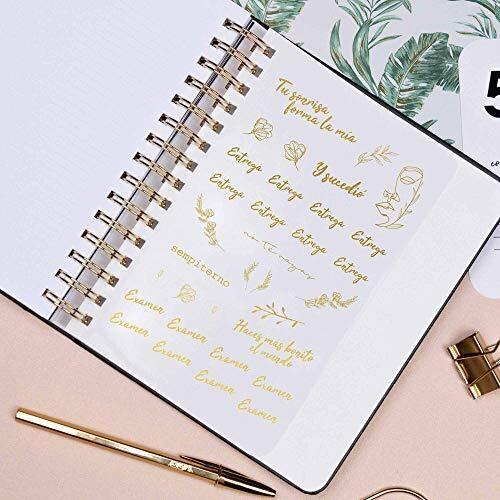 Tu sonrisa
forma la mía
Y sucedió
Entrega Entrega Entrega Entrega
Entrega Entrega Entrega Entrega
no te rayes
sempiterno
Haces mas bonito
el mundo
Examen Examen Examen Examen
Examen Examen Examen Examen
5